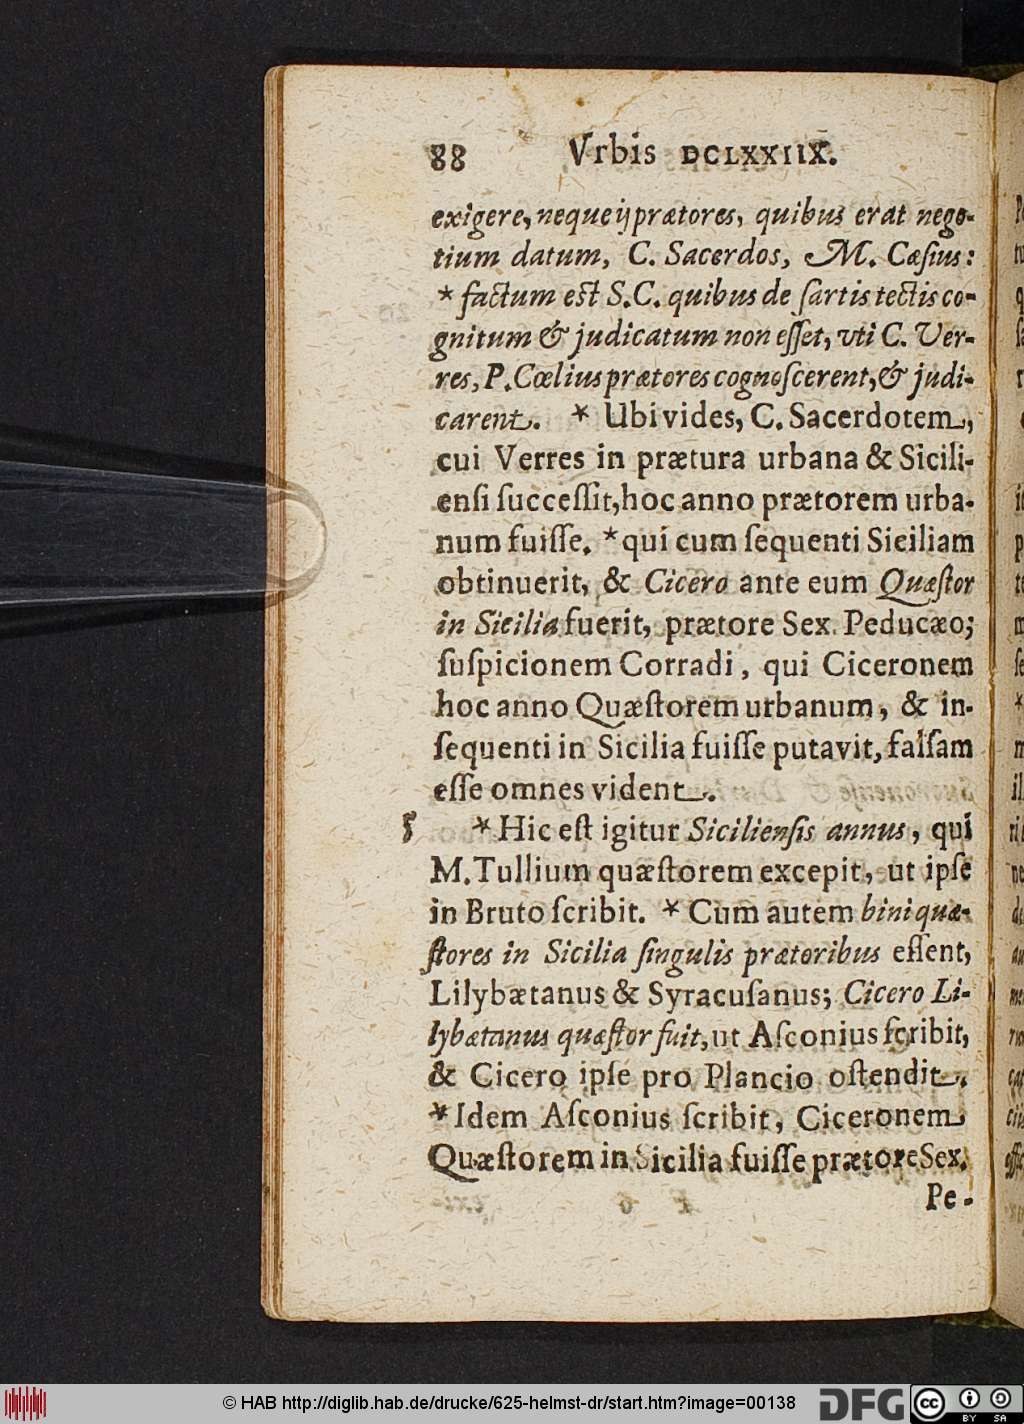 88 Vrbis DCLXXIIX.
exigere, neque ij prætores, quibus erat nego-
tium datum, C. Sacerdos, M. Cæſius:
* factum est S.C. quibus de ſartis tectis co-
gnitum & judicatum non eſſet, vti C. Ver-
res, P. Cœlius prætores cognoſcerent, & judi-
carent. * Ubi vides, C. Sacerdotem,
cui Verres in prætura urbana & Sicili-
enſi ſucceſſit, hoc anno prætorem urba-
num fuiſſe. * qui cum ſequenti Siciliam
obtinuerit, & Cicero ante eum Quæſtor
in Sicilia fuerit, prætore Sex. Peducæo;
ſuſpicionem Corradi, qui Ciceronem
hoc anno Quæſtorem urbanum, & in-
ſequenti in Sicilia fuiſſe putavit, falſam
eſſe omnes vident.
* Hic eſt igitur Sicilienſis annus, qui
M. Tullium quæſtorem excepit, ut ipſe
in Bruto ſcribit. * Cum autem bini quæ-
ſtores in Sicilia ſingulis prætoribus eſſent,
Lilybætanus & Syracuſanus; Cicero Li-
lybætanus quæſtor fuit, ut Aſconius ſcribit,
& Cicero ipſe pro Plancio oſtendit.
* Idem Aſconius ſcribit, Ciceronem
Quæſtorem in Sicilia fuiſſe prætore Sex.
Pe-
© HAB http://diglib.hab.de/drucke/625-helmst-dr/start.htm?image=00138
DFG
cc
BY SA